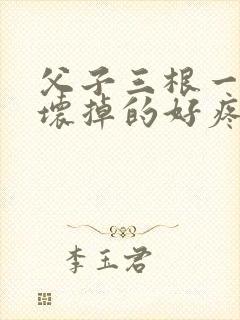 父子三根一
壞掉的好疼
李玉君